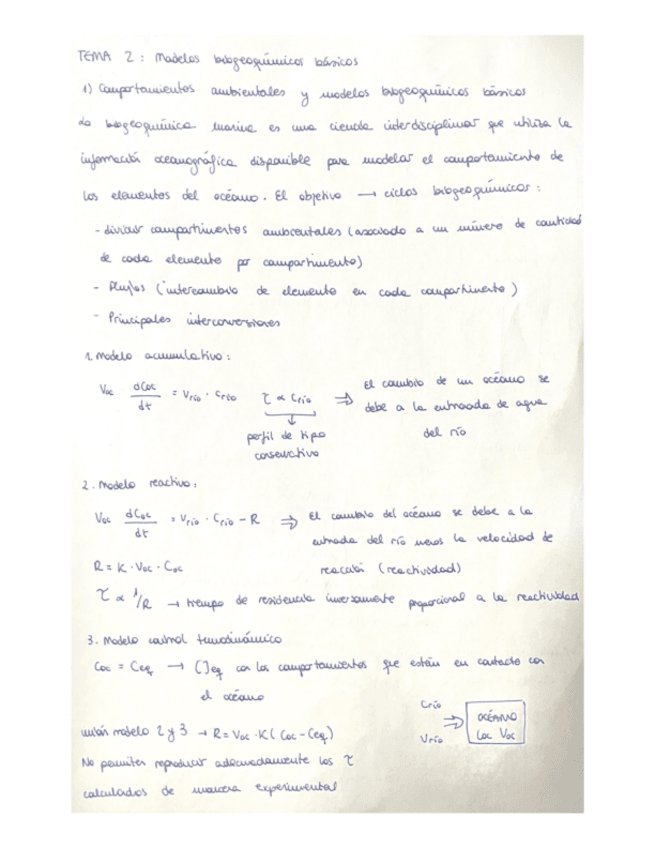 TEMA 2 : Modelos biogeoquímicos básicos
1) Comportamientos ambientales y modelos biogeoquímicos básicos
La biogeoquímica marina es una ciencia interdisciplinar que utiliza la
información oceanográfica disponible para modelar el comportamiento de
los elementos del océano. El objetivo → ciclos biogeoquímicos :
- dividir compartimentos ambientales (asociado a un número de cantidad
de cada elemento por compartimento)
- Flujos (intercambio de elemento en cada compartimento)
- Principales interconversiones
1. Modelo acumulativo :
Voc dCoc/dt = Vrío · Crío   τ ∝ Crío ⇒ El cambio de un océano se
debe a la entrada de agua
del río
perfil de tipo
conservativo
2. Modelo reactivo :
Voc dCoc/dt = Vrío · Crío - R ⇒ El cambio del océano se debe a la
entrada del río menos la velocidad de
R = K · Voc · Coc   reacción (reactividad)
τ ∝ 1/R → tiempo de residencia inversamente proporcional a la reactividad
3. Modelo control termodinámico
Coc = Ceq → [ ]eq con los compartimentos que están en contacto con
el océano
Crío
Vrío ⇒ OCÉANO
Coc Voc
unión modelo 2 y 3 → R = Voc · K ( Coc - Ceq )
No permiten reproducir adecuadamente los τ
calculados de manera experimental